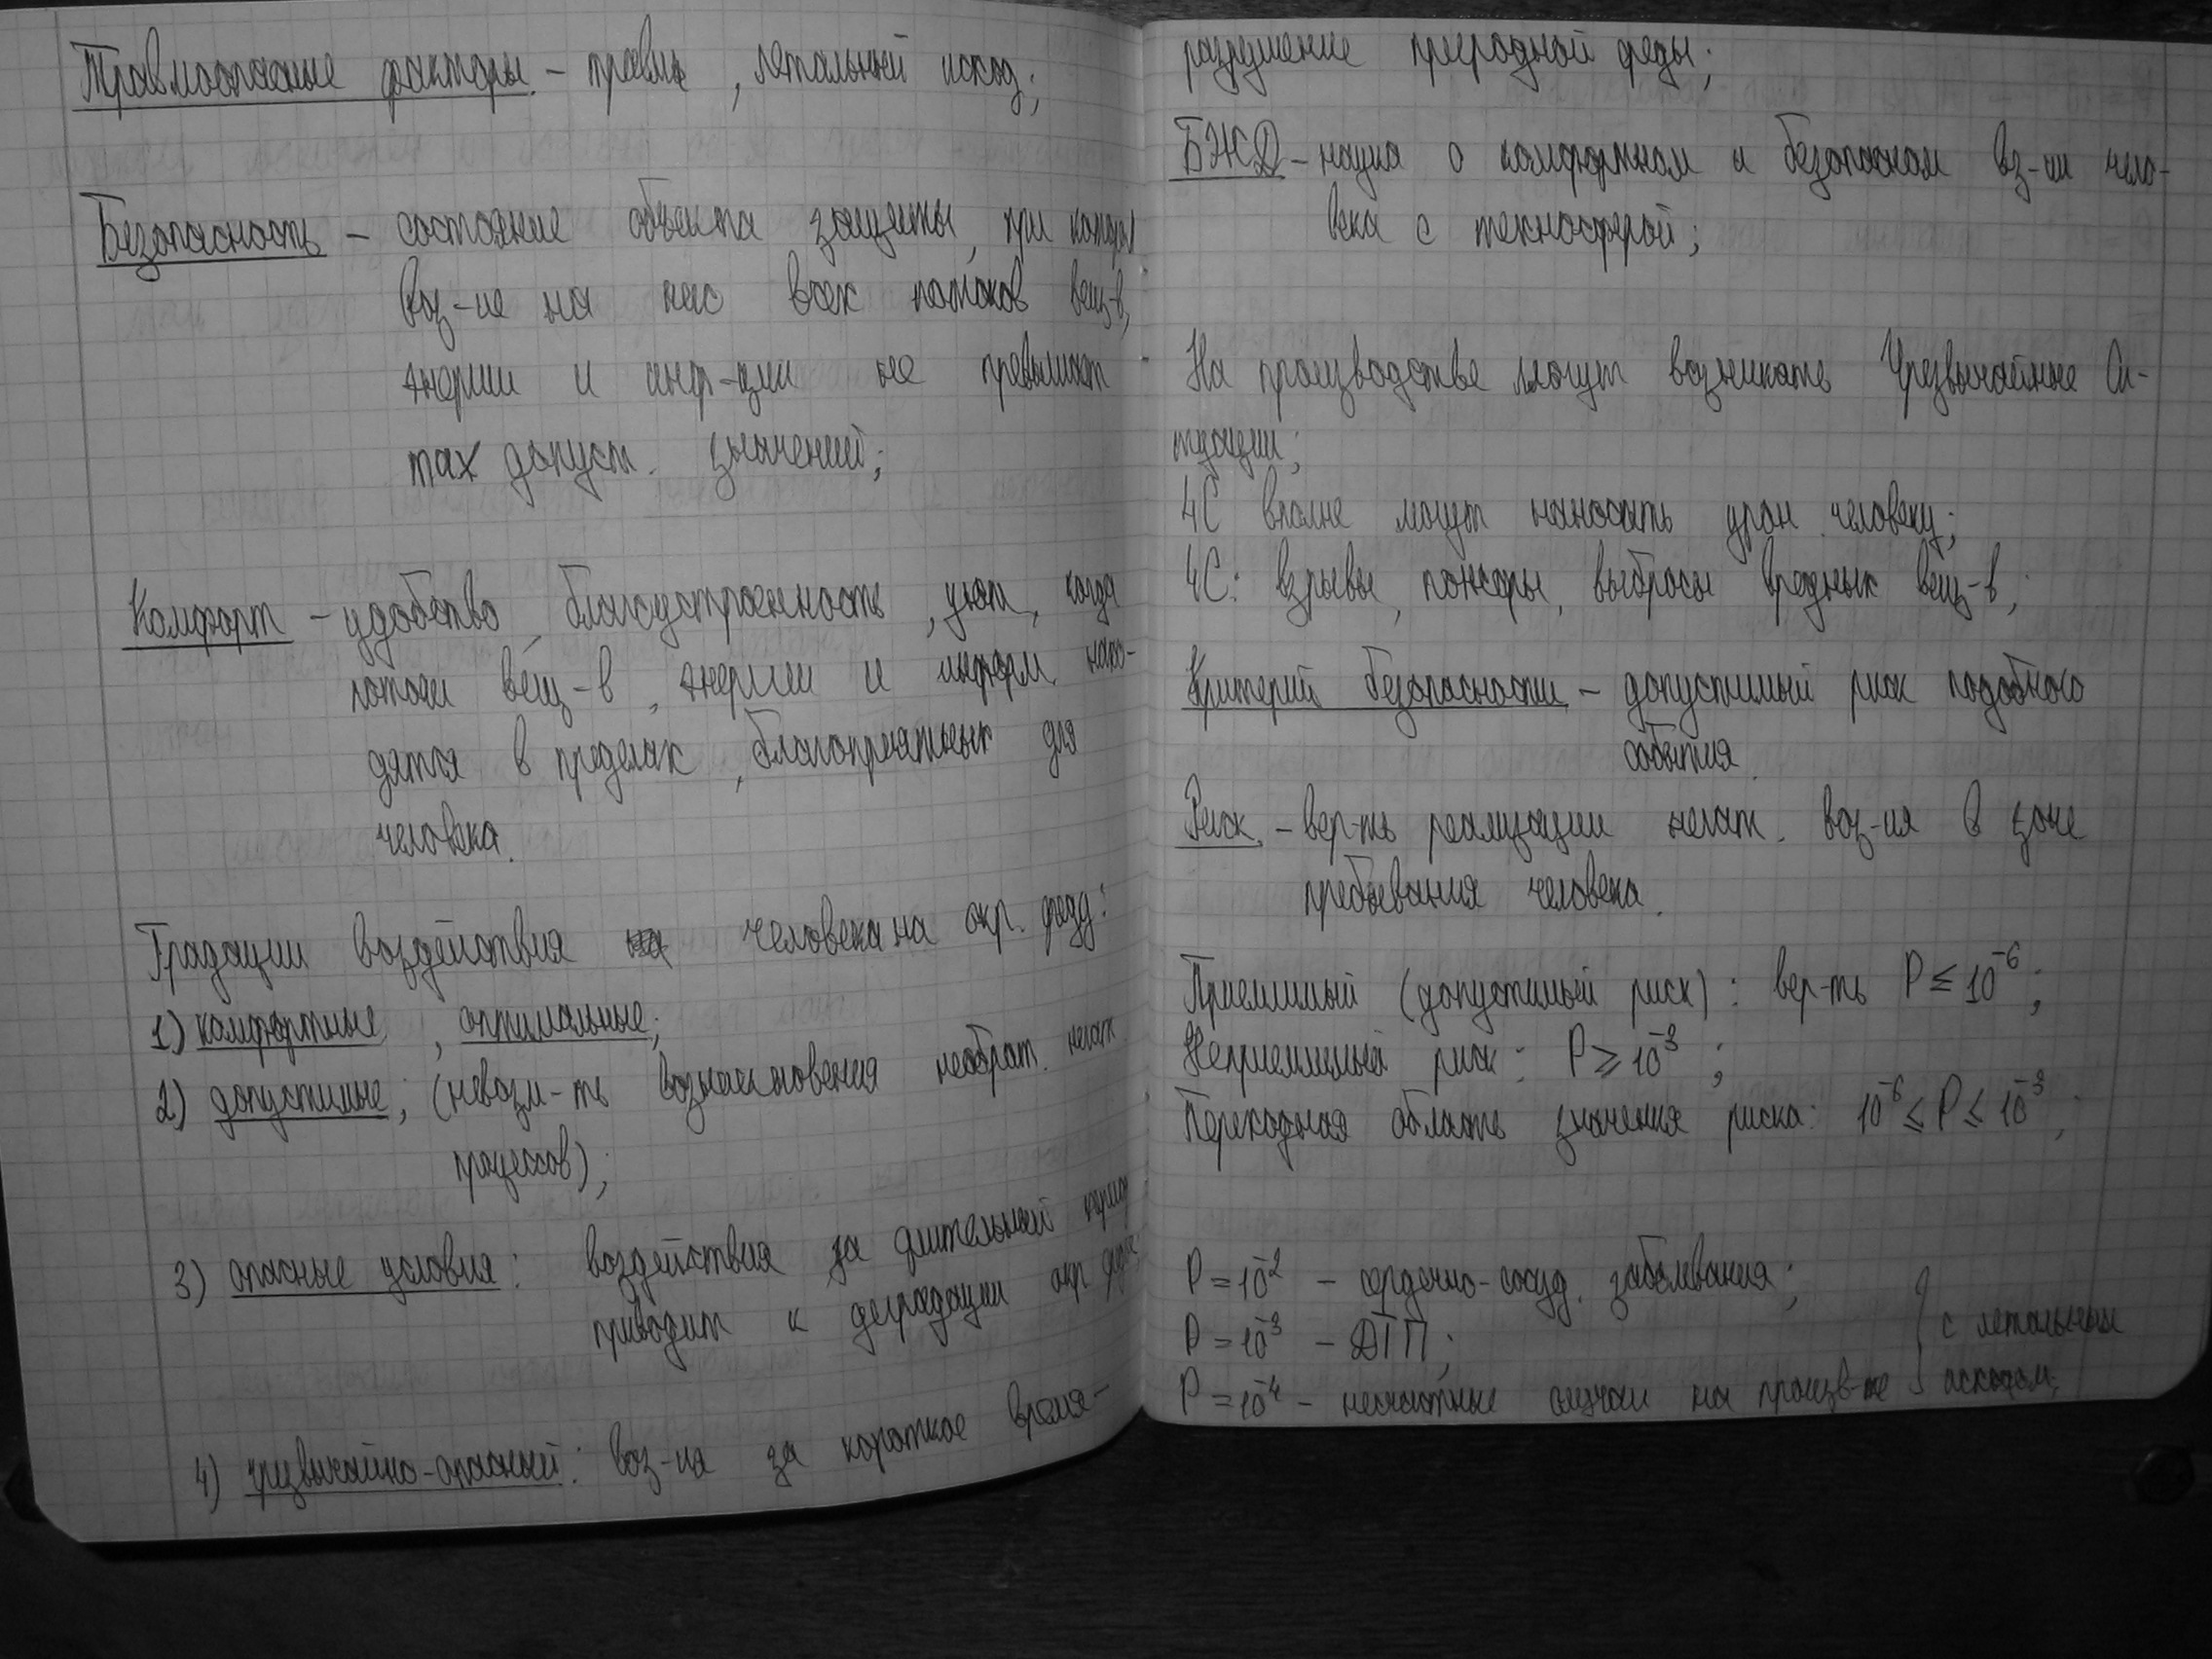 Травмоопасные факторы - травмы, летальный исход;
Безопасность - состояние объекта защиты, при котор
воз-ие на нас всех потоков вещ-в,
энергии и инф-ции не превышает
max допуст. значений;
Комфорт - удобство, благоустроенность, уют, когда
потоки вещ-в, энергии и информ. нахо-
дятся в пределах, благоприятных для
человека.
Градации воздействия человека на окр. среду:
1) комфортные, оптимальные;
2) допустимые; (невозм-ть возникновения необрат. негат.
процессов);
3) опасные условия: воздействия за длительный период
приводит к деградации окр. среды;
4) чрезвычайно-опасный: воз-ия за короткое время-
разрушение природной среды;
БЖД - наука о комфортном и безопасном вз-ии чело-
века с техносферой;
На производстве могут возникать Чрезвычайные Си-
туации;
ЧС вполне могут наносить урон человеку;
ЧС: взрывы, пожары, выбросы вредных вещ-в;
Критерий безопасности - допустимый риск подобного
события.
Риск - вер-ть реализации негат. воз-ия в зоне
пребывания человека.
Приемлимый (допустимый риск): вер-ть P ≤ 10⁻⁶;
Неприемлимый риск: P ⩾ 10⁻³;
Переходная область значения риска: 10⁻⁶ ≤ P ≤ 10⁻³;
P = 10⁻² - сердечно-сосуд. заболевания;
P = 10⁻³ - ДТП;
P = 10⁻⁴ - несчастные случаи на произв-ве } с летальным
исходом;